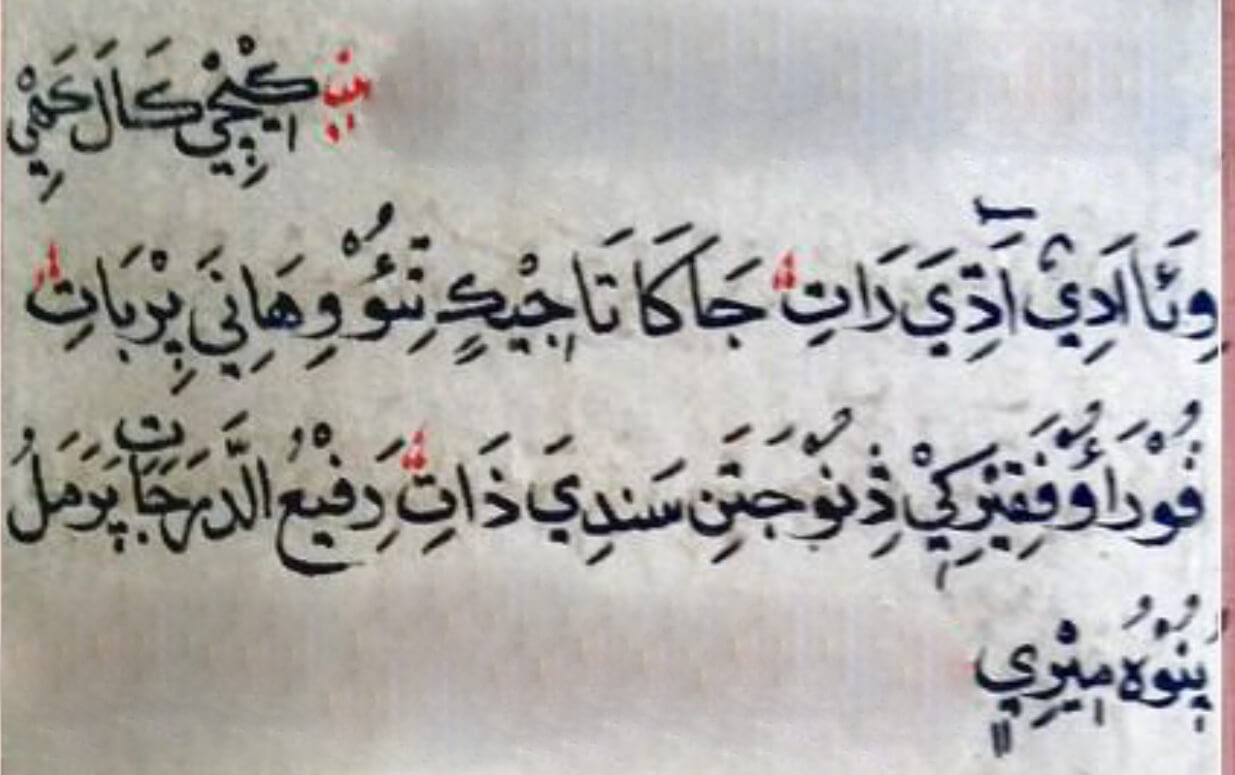 كِيْچِيْ كَالَ كَهِيْ
وِئَا اَدِيْ آدِّيَ رَاتِ جَا كَا تَا جِيْكِ تِئُوْ وِهَانِيَ پِرْبَاتِ
فُوْرَا اُوْ فَقِيْرَكِيْ ذِنُوْ جَتَنِ سَندِيَ ذَاتِ رَفِيْعُ الدَّرَجَاتِ پَرَمَلُ
پُنُوْهُ مِيْرِيِ